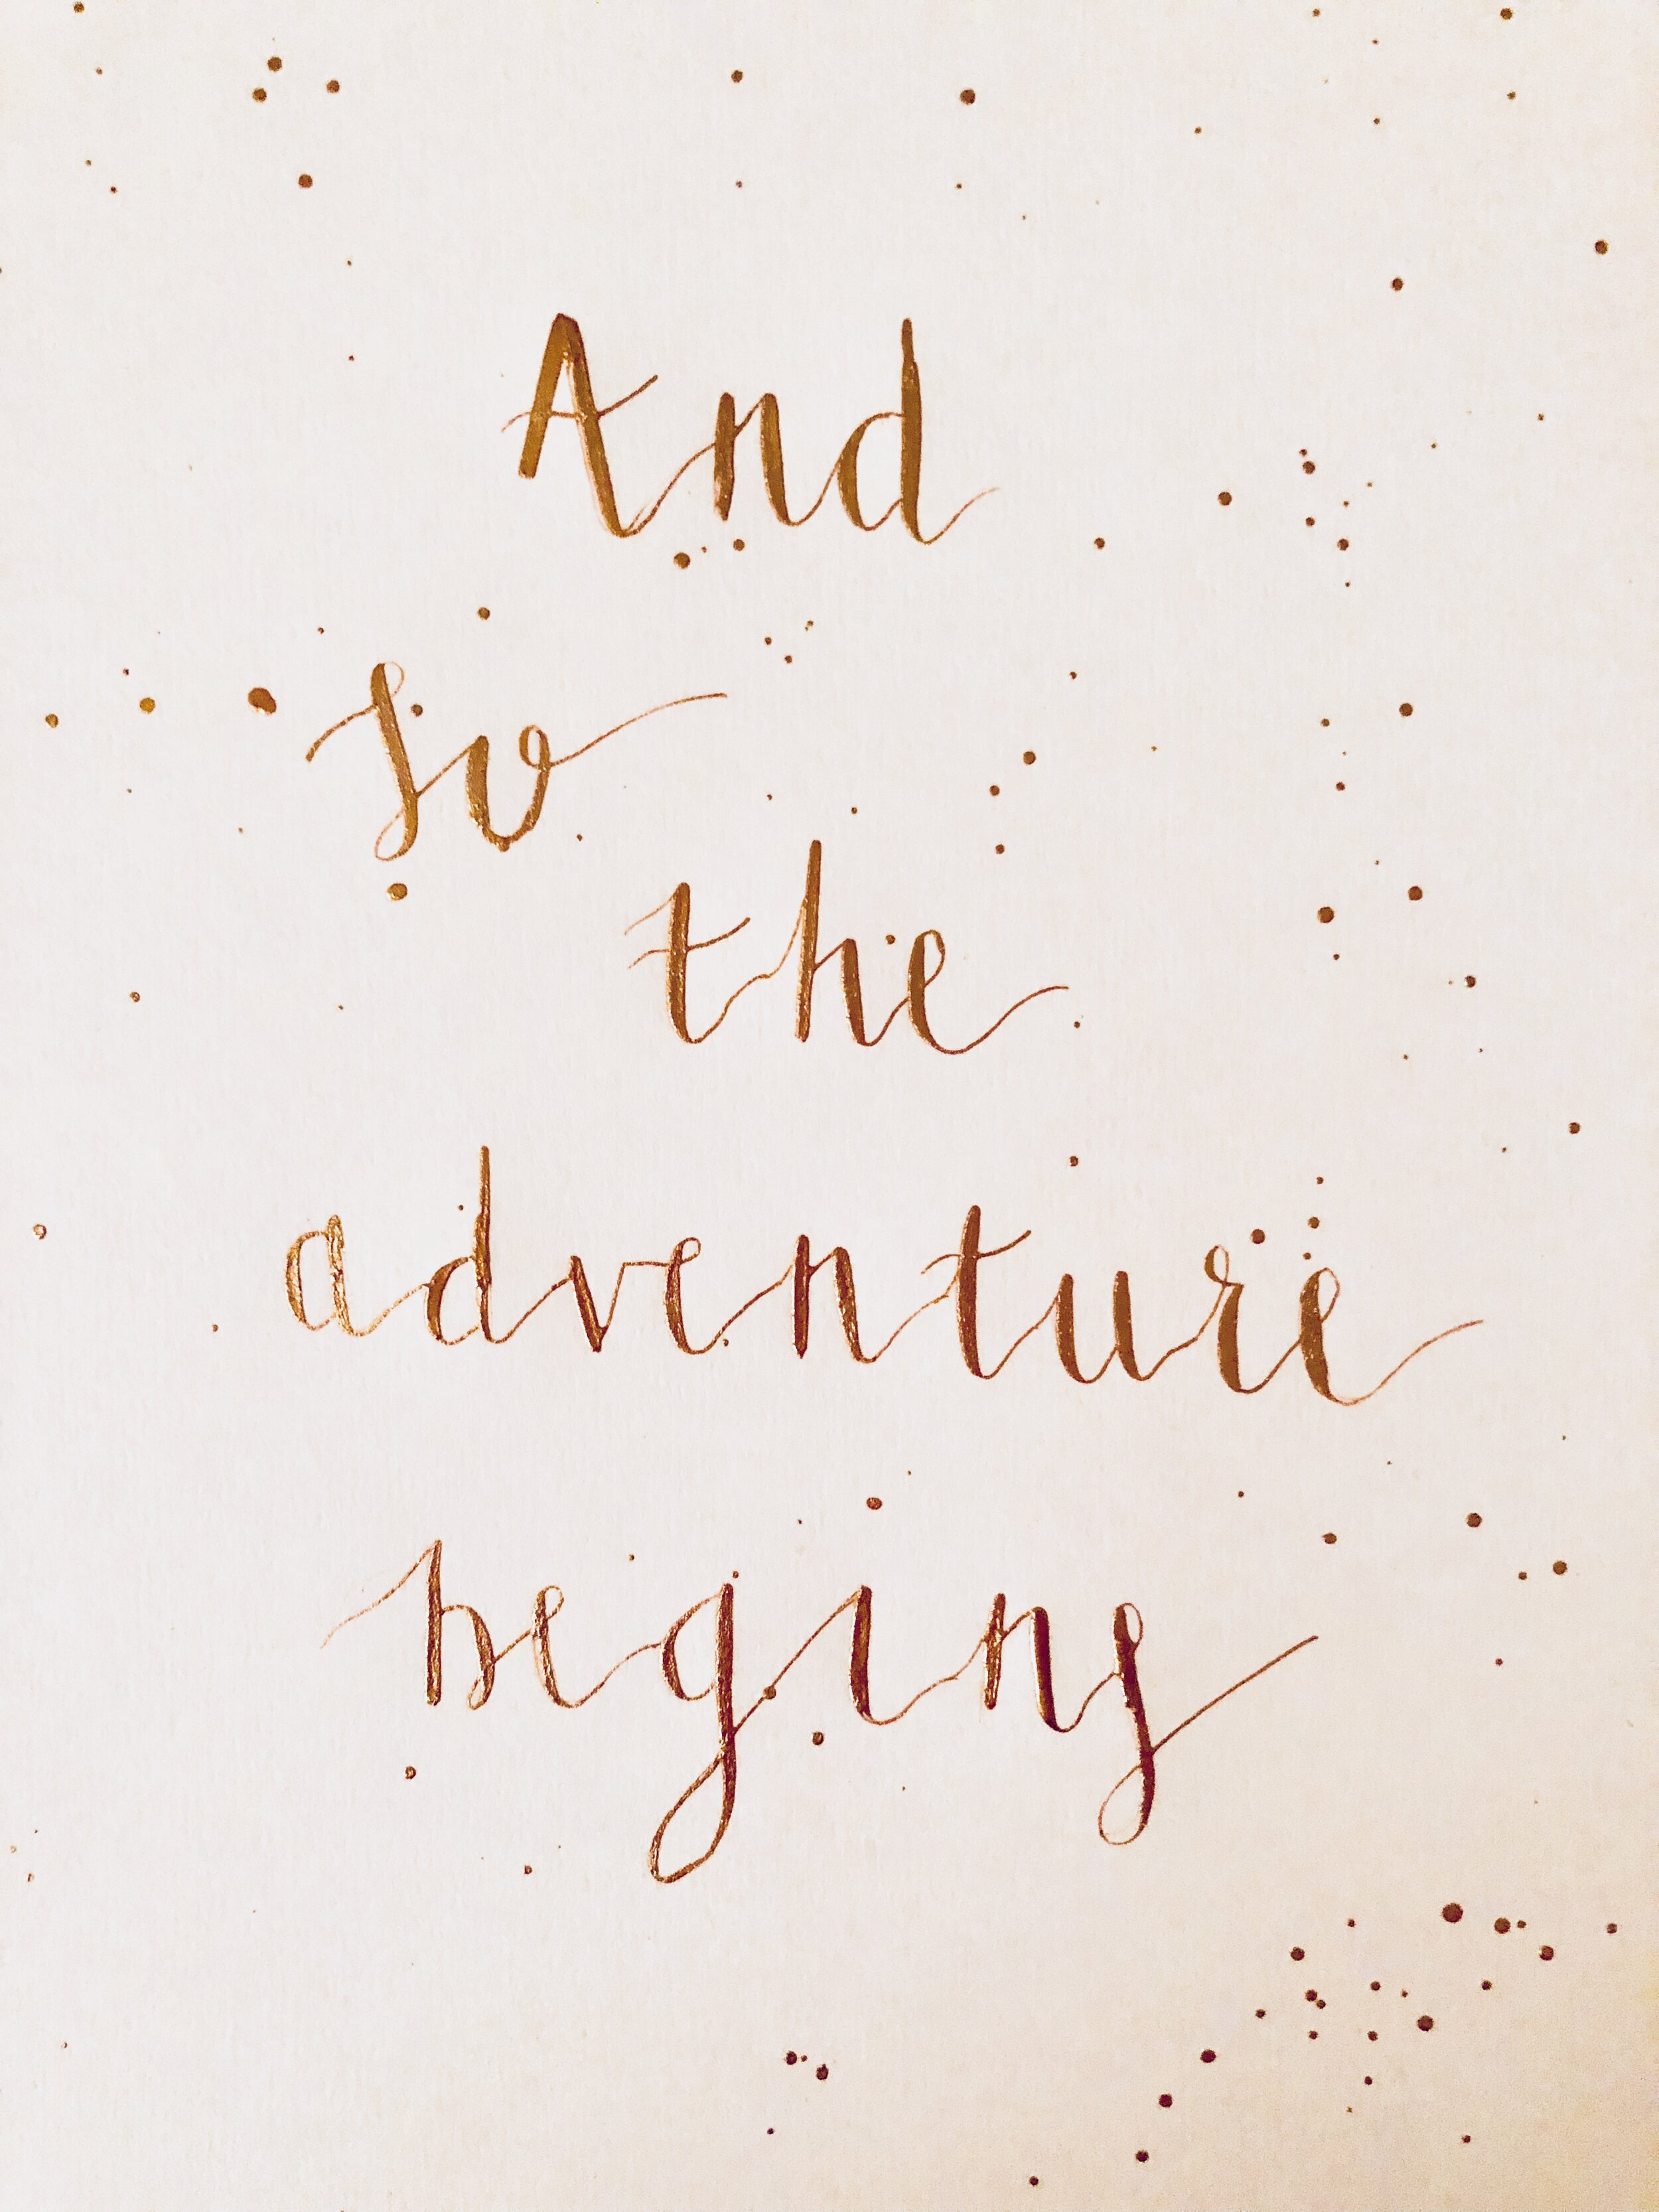 And
so
the
adventure
begins